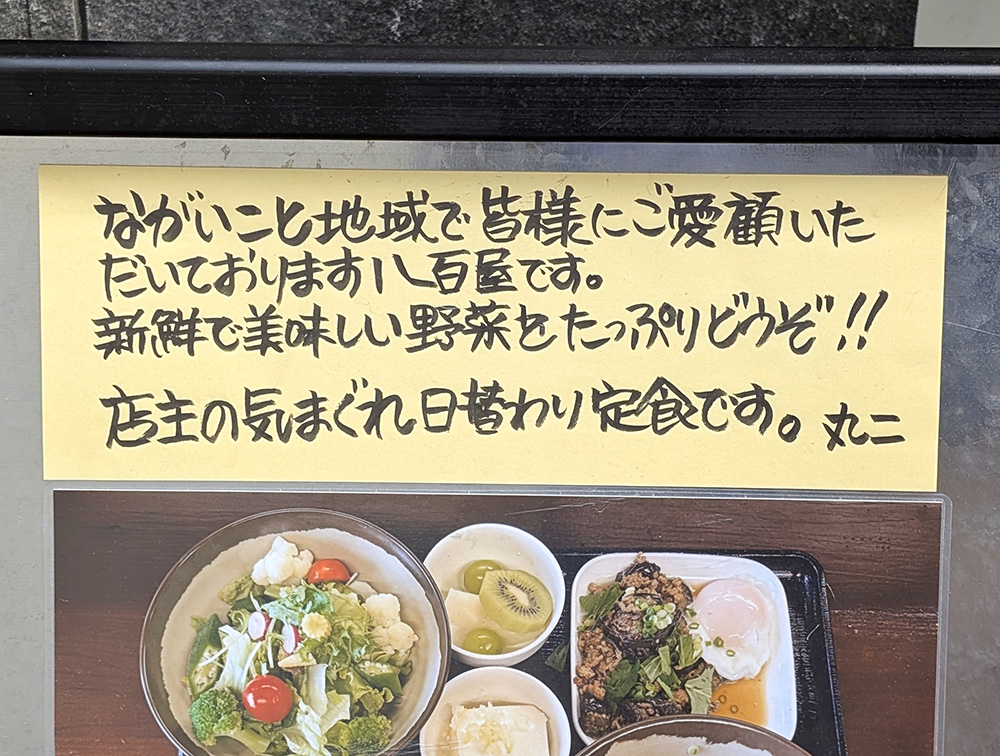 ながいこと地域で皆様にご愛顧いた
だいております八百屋です。
新鮮で美味しい野菜をたっぷりどうぞ!!
店主の気まぐれ日替わり定食です。丸二